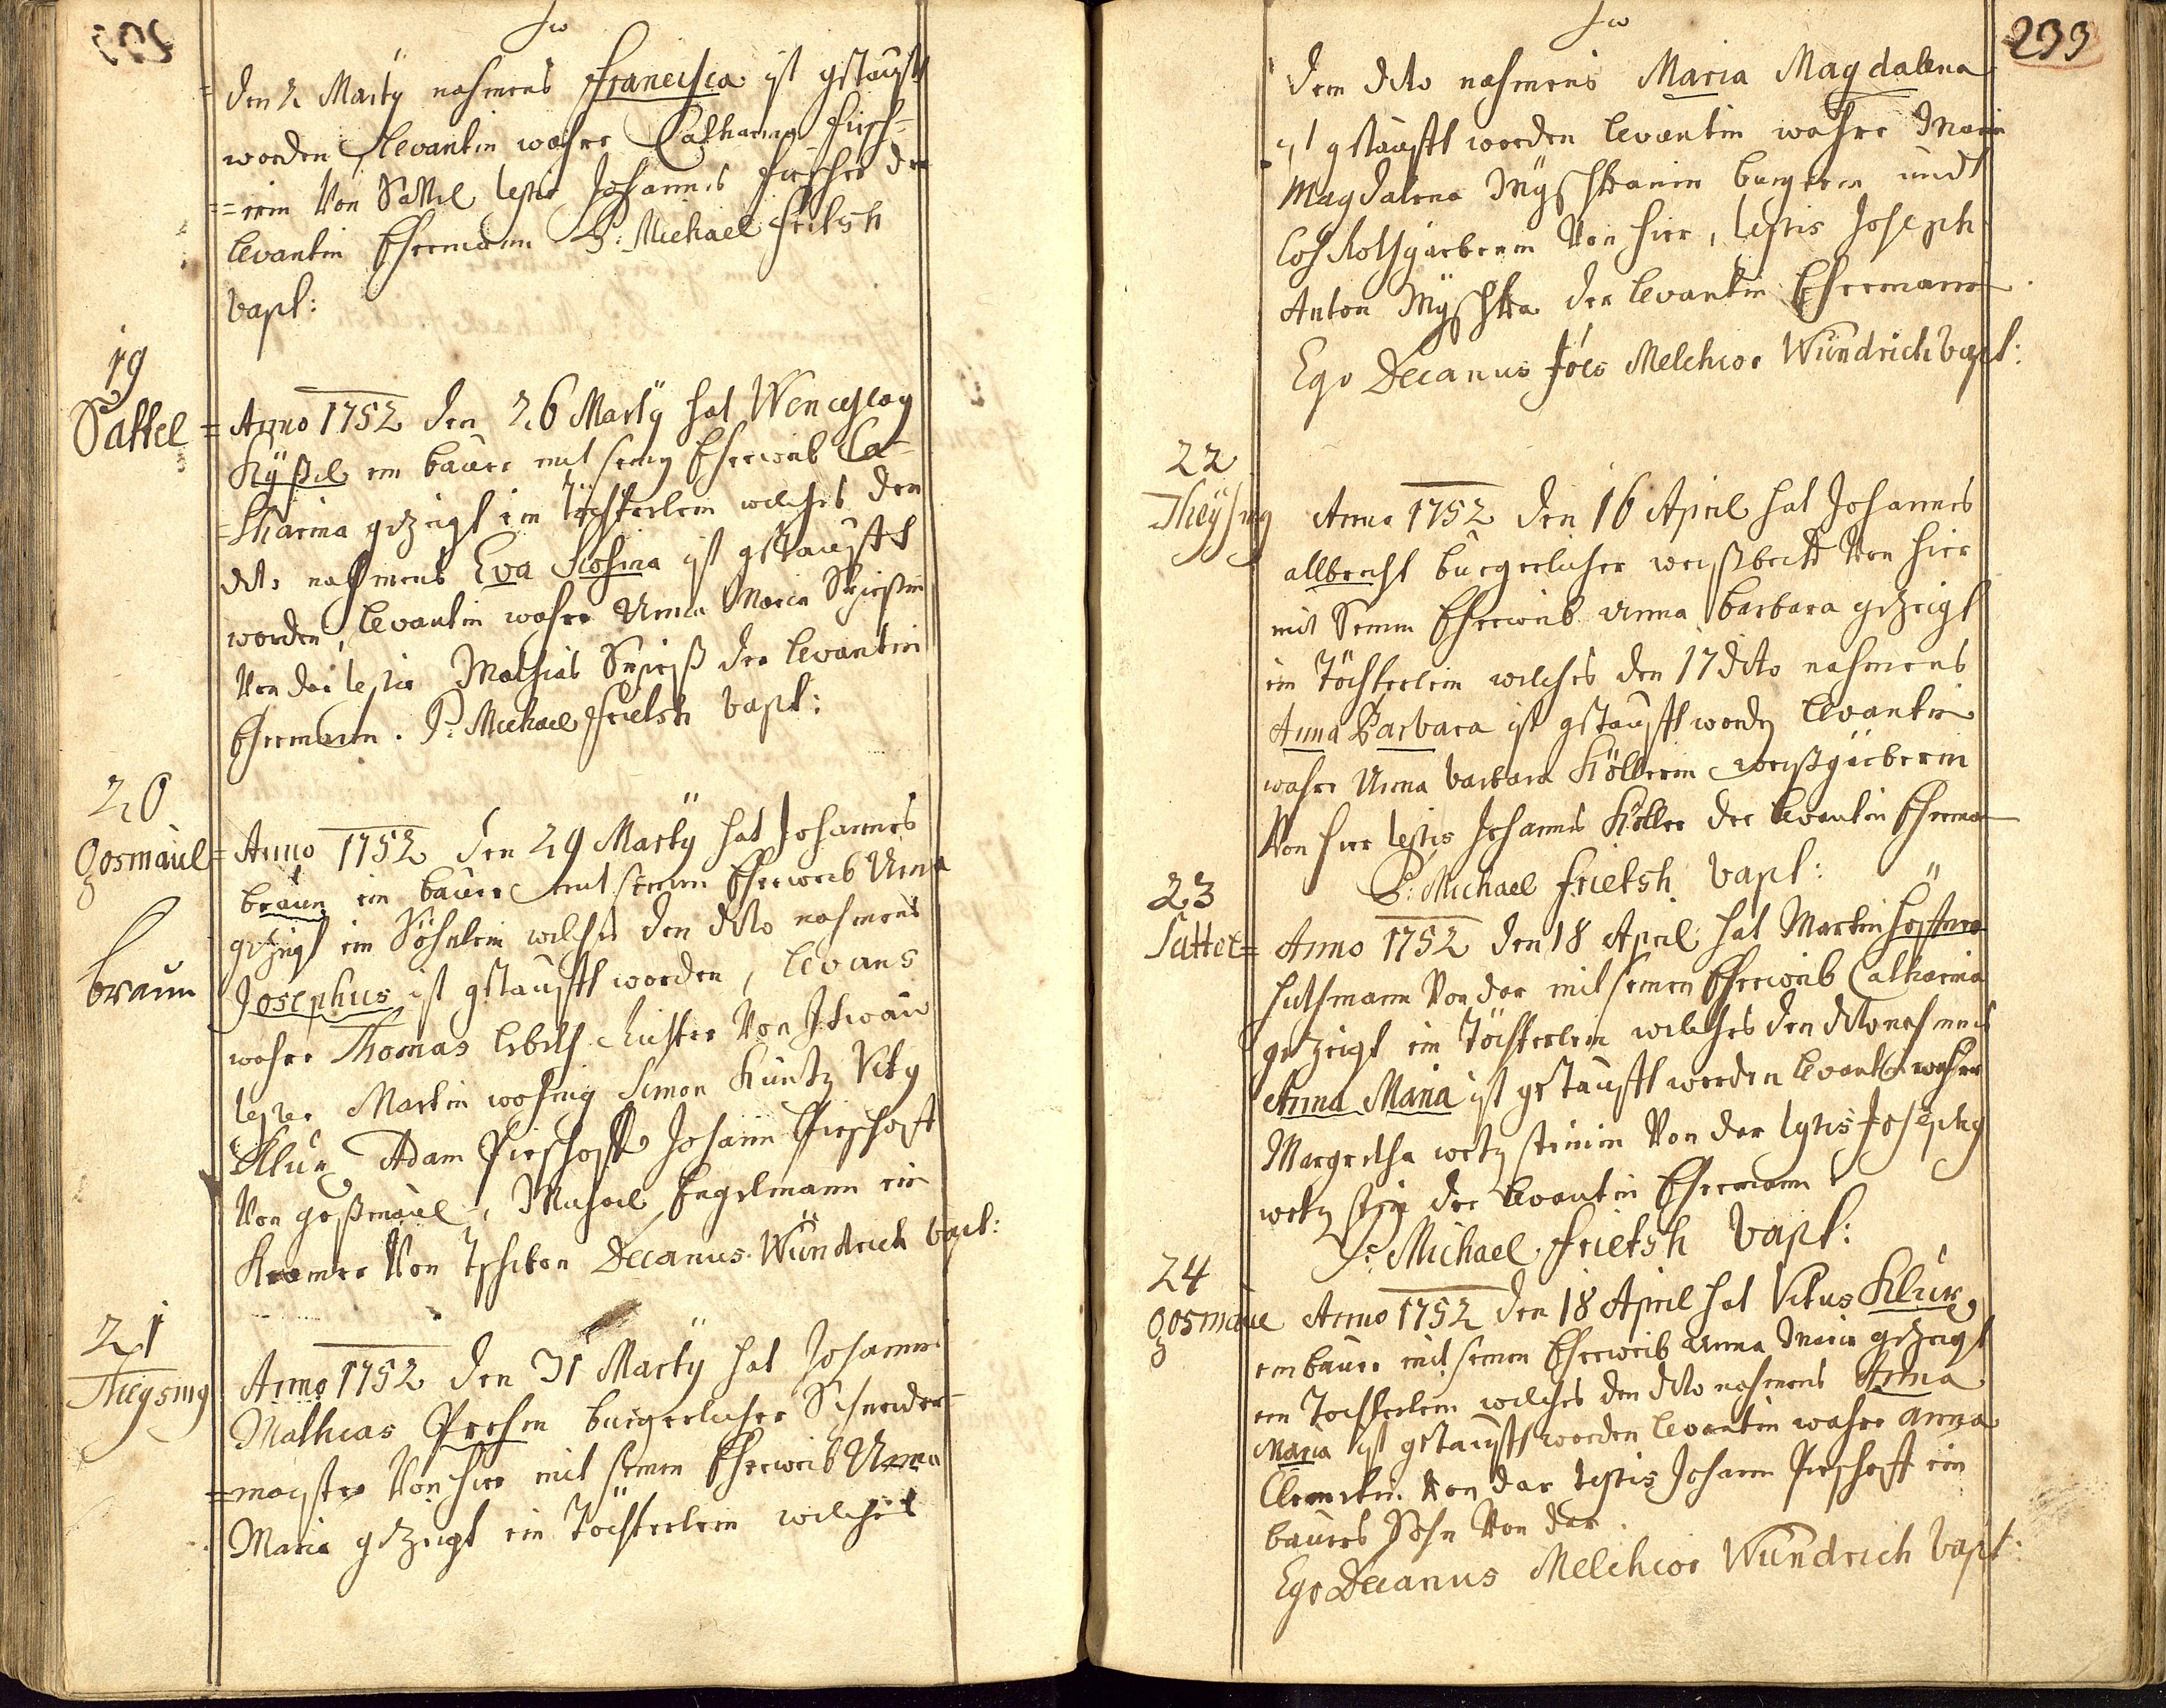 den 2 Marty nahmens Francisca ist getaufft
worden, levantin wahre Catharina Fisch-
=erin Von Sattel testis Johannis Fischer der
levantin Eheemann P: Michael Frietsh
bapt:
19
Sattel
Anno 1752 den 26 Martÿ hat Wenceslaÿ
ein bauer mit seinem Eheeweib Ca-
=tharina gezeigt ein Töchterlein welches den
ditto nahmens Eva Rosina ist getaufft
worden, levantin wahre Anna Maria
Von dar testis Mathias der levantin
Eheemann. P: Michael Frietsh bapt:
20
Gosmaul
braun
Anno 1752 den 29 Martÿ hat Johannes
braun ein bauer mit seinem Eheeweib Anna
gezeigt ein Söhnlein welches den ditto nahmens
Josephus ist getaufft worden, levans
wahre Thomas Richter Von
testes Martin Simon Kuntz Vity
Klur Adam Pirschoff Johann Pirschoft
Von goßmaul, Michael Engelmann ein
Kramer Von Decanus Wündrich bapt:
21
Theysing
Anno 1752 den 31 Martÿ hat Johann
Mathias Prehm burgerlicher Schneider-
=meister Von hier mit seinem Eheeweib Anna
Maria gezeigt ein Töchterlein welches
233
dem ditto nahmens Maria Magdalena
ist getaufft worden levantin wahre Maria
Magdalena Myschkanin burgerin undt
Rothgärberin Von hier, testis Joseph
Anton Myschka der levantin Eheemann.
Ego Decanus Jões Melchior Wündrich bapt:
22
Theÿsing
Anno 1752 den 16 April hat Johannes
allbrecht bürgerlicher weißbeckh Von hier
mit Seinem Eheeweib Anna Barbara gezeigt
ein Töchterlein welches den 17 ditto nahmens
Anna Barbara ist getaufft worden levantin
wahre Anna barbara Köllerin weißgärberin
Von hier testis Johannes Köller der levantin Eheeman
P: Michael Frietsh bapt:
23
Sattel
Anno 1752 den 18 April hat Martin Höffner
huthmann Von dar mit seinem Eheeweib Catharina
gezeigt ein Töchterlein welches den ditto nahmens
Anna Maria ist getaufft worden levantin wahre
Margretha wetzsteinin Von dar testis Josephÿ
wetzstein der levantin Eheemann
P: Michael Frietsh bapt:
24
gosmaul
Anno 1752 den 18 April hat Vitus Klur
ein bauer mit seinem Eheeweib Anna Maria gezeigt
ein Töchterlein welches den ditto nahmens Anna
Maria ist getaufft worden levantin wahre anna
Von dar testis Johann Pirschoft ein
bauers Sohn Von dar.
Ego Decanus Melchior Wündrich bapt: